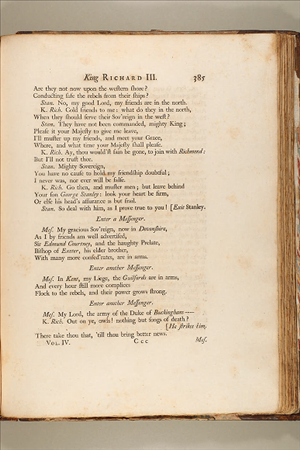 King RICHARD III. 385
Are they not now upon the western shore?
Conducting safe the rebels from their ships?
Stan. No, my good Lord, my friends are in the north.
K. Rich. Cold friends to me: what do they in the north,
When they should serve their Sov'reign in the west?
Stan. They have not been commanded, mighty King;
Please it your Majesty to give me leave,
I'll muster up my friends, and meet your Grace,
Where, and what time your Majesty shall please.
K. Rich. Ay, thou would'st fain be gone, to join with Richmond:
But I'll not trust thee.
Stan. Mighty Sovereign,
You have no cause to hold my friendship doubtful;
I never was, nor ever will be false.
K. Rich. Go then, and muster men; but leave behind
Your son George Stanley: look your heart be firm,
Or else his head's assurance is but frail.
Stan. So deal with him, as I prove true to you! [Exit Stanley.
Enter a Messenger.
Mes. My gracious Sov'reign, now in Devonshire,
As I by friends am well advertised,
Sir Edmund Courtney, and the haughty Prelate,
Bishop of Exeter, his elder brother,
With many more confed'rates, are in arms.
Enter another Messenger.
Mes. In Kent, my Liege, the Guilfords are in arms,
And every hour still more complices
Flock to the rebels, and their power grows strong.
Enter another Messenger.
Mes. My Lord, the army of the Duke of Buckingham—
K. Rich. Out on ye, owls! nothing but songs of death?
[He strikes him.
There take thou that, 'till thou bring better news.
VOL. IV. C c c Mes.